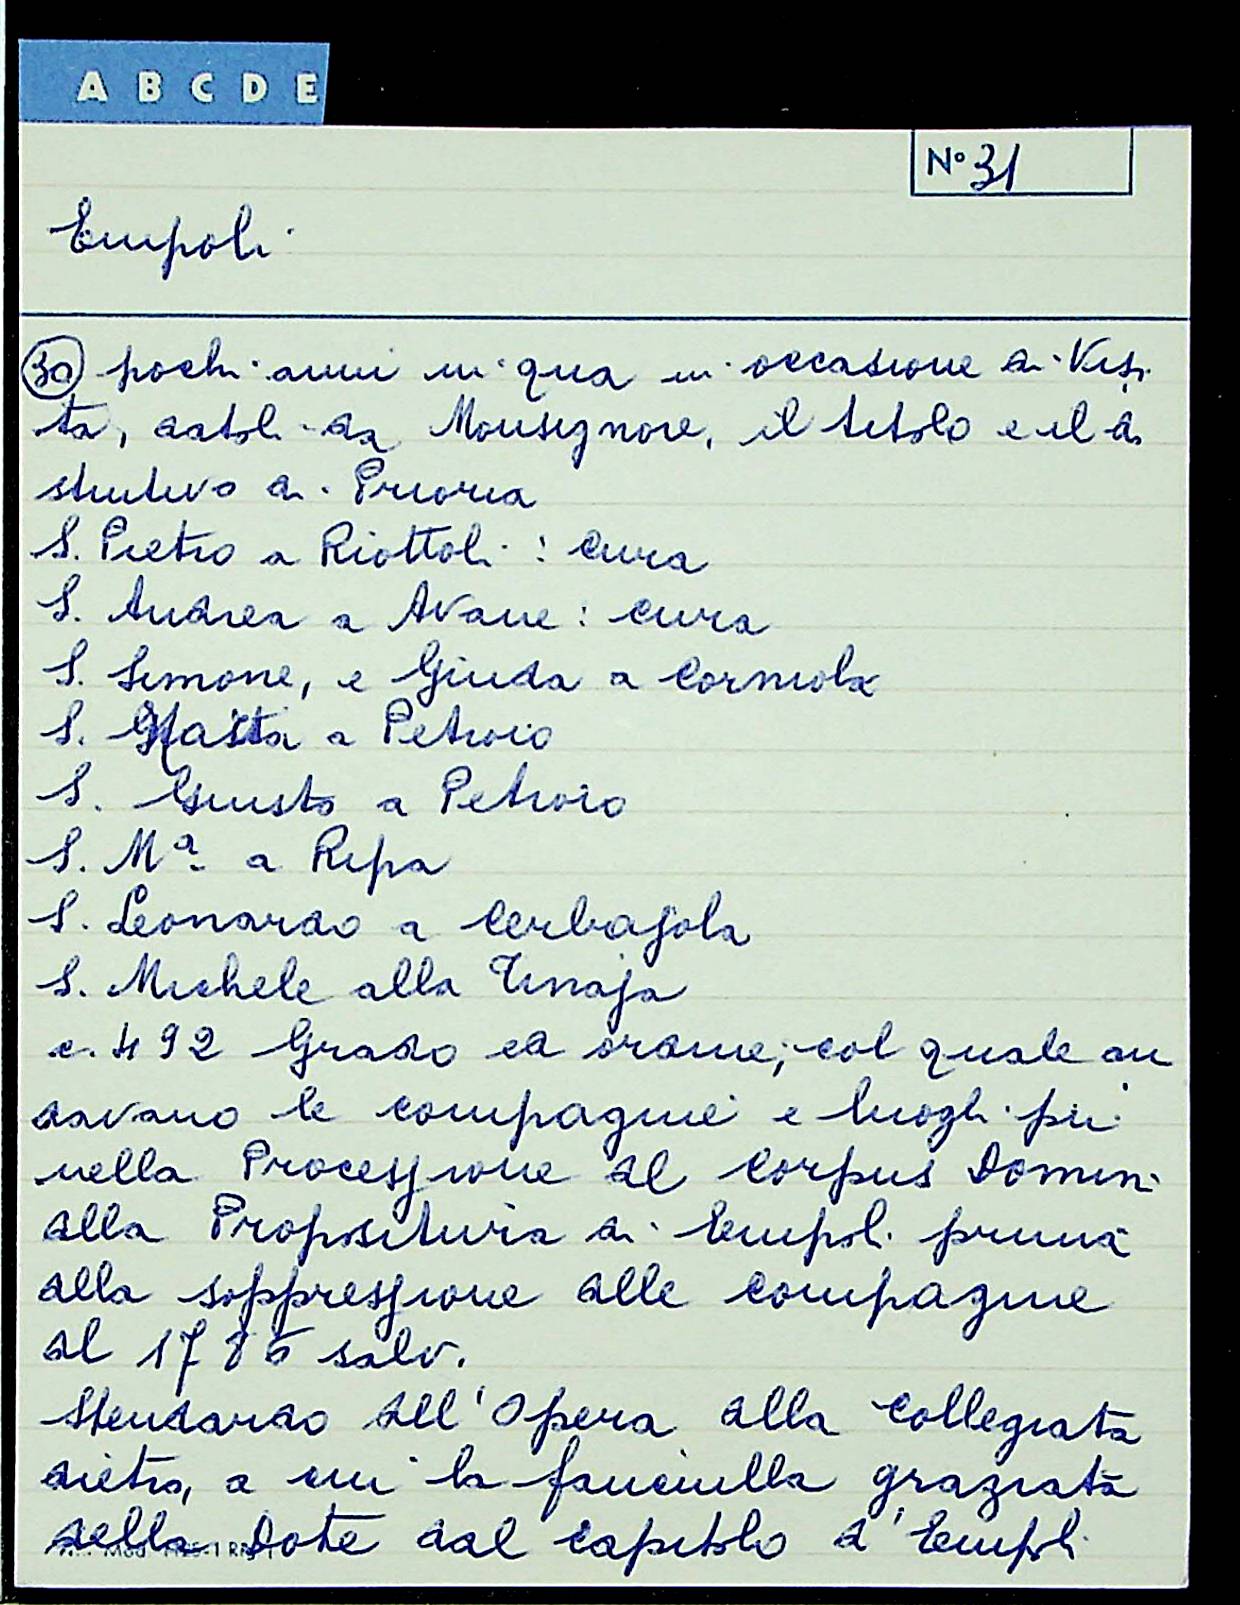 A B C D E
N° 31
Empoli
30 pochi anni in qua in occasione di Visi
ta, datoli da Monsignore, il titolo e il di
stintivo di Prioria
S. Pietro a Riottoli : cura
S. Andrea a Avane : cura
S. Simone, e Giuda a Corniola
S. a Petroio
S. Giusto a Petroio
S. Mª a Ripa
S. Leonardo a Cerbajola
S. Michele alla Tinaja
c. 492 Grado ed ordine, col quale an
davano le compagnie e luoghi pii
nella Processione del Corpus Domini
della Propositura di Empoli prima
della soppressione delle compagnie
del 1785 salv.
Stendardo dell'Opera della Collegiata
dietro, a cui la fanciulla graziata
della Dote dal Capitolo d'Empoli